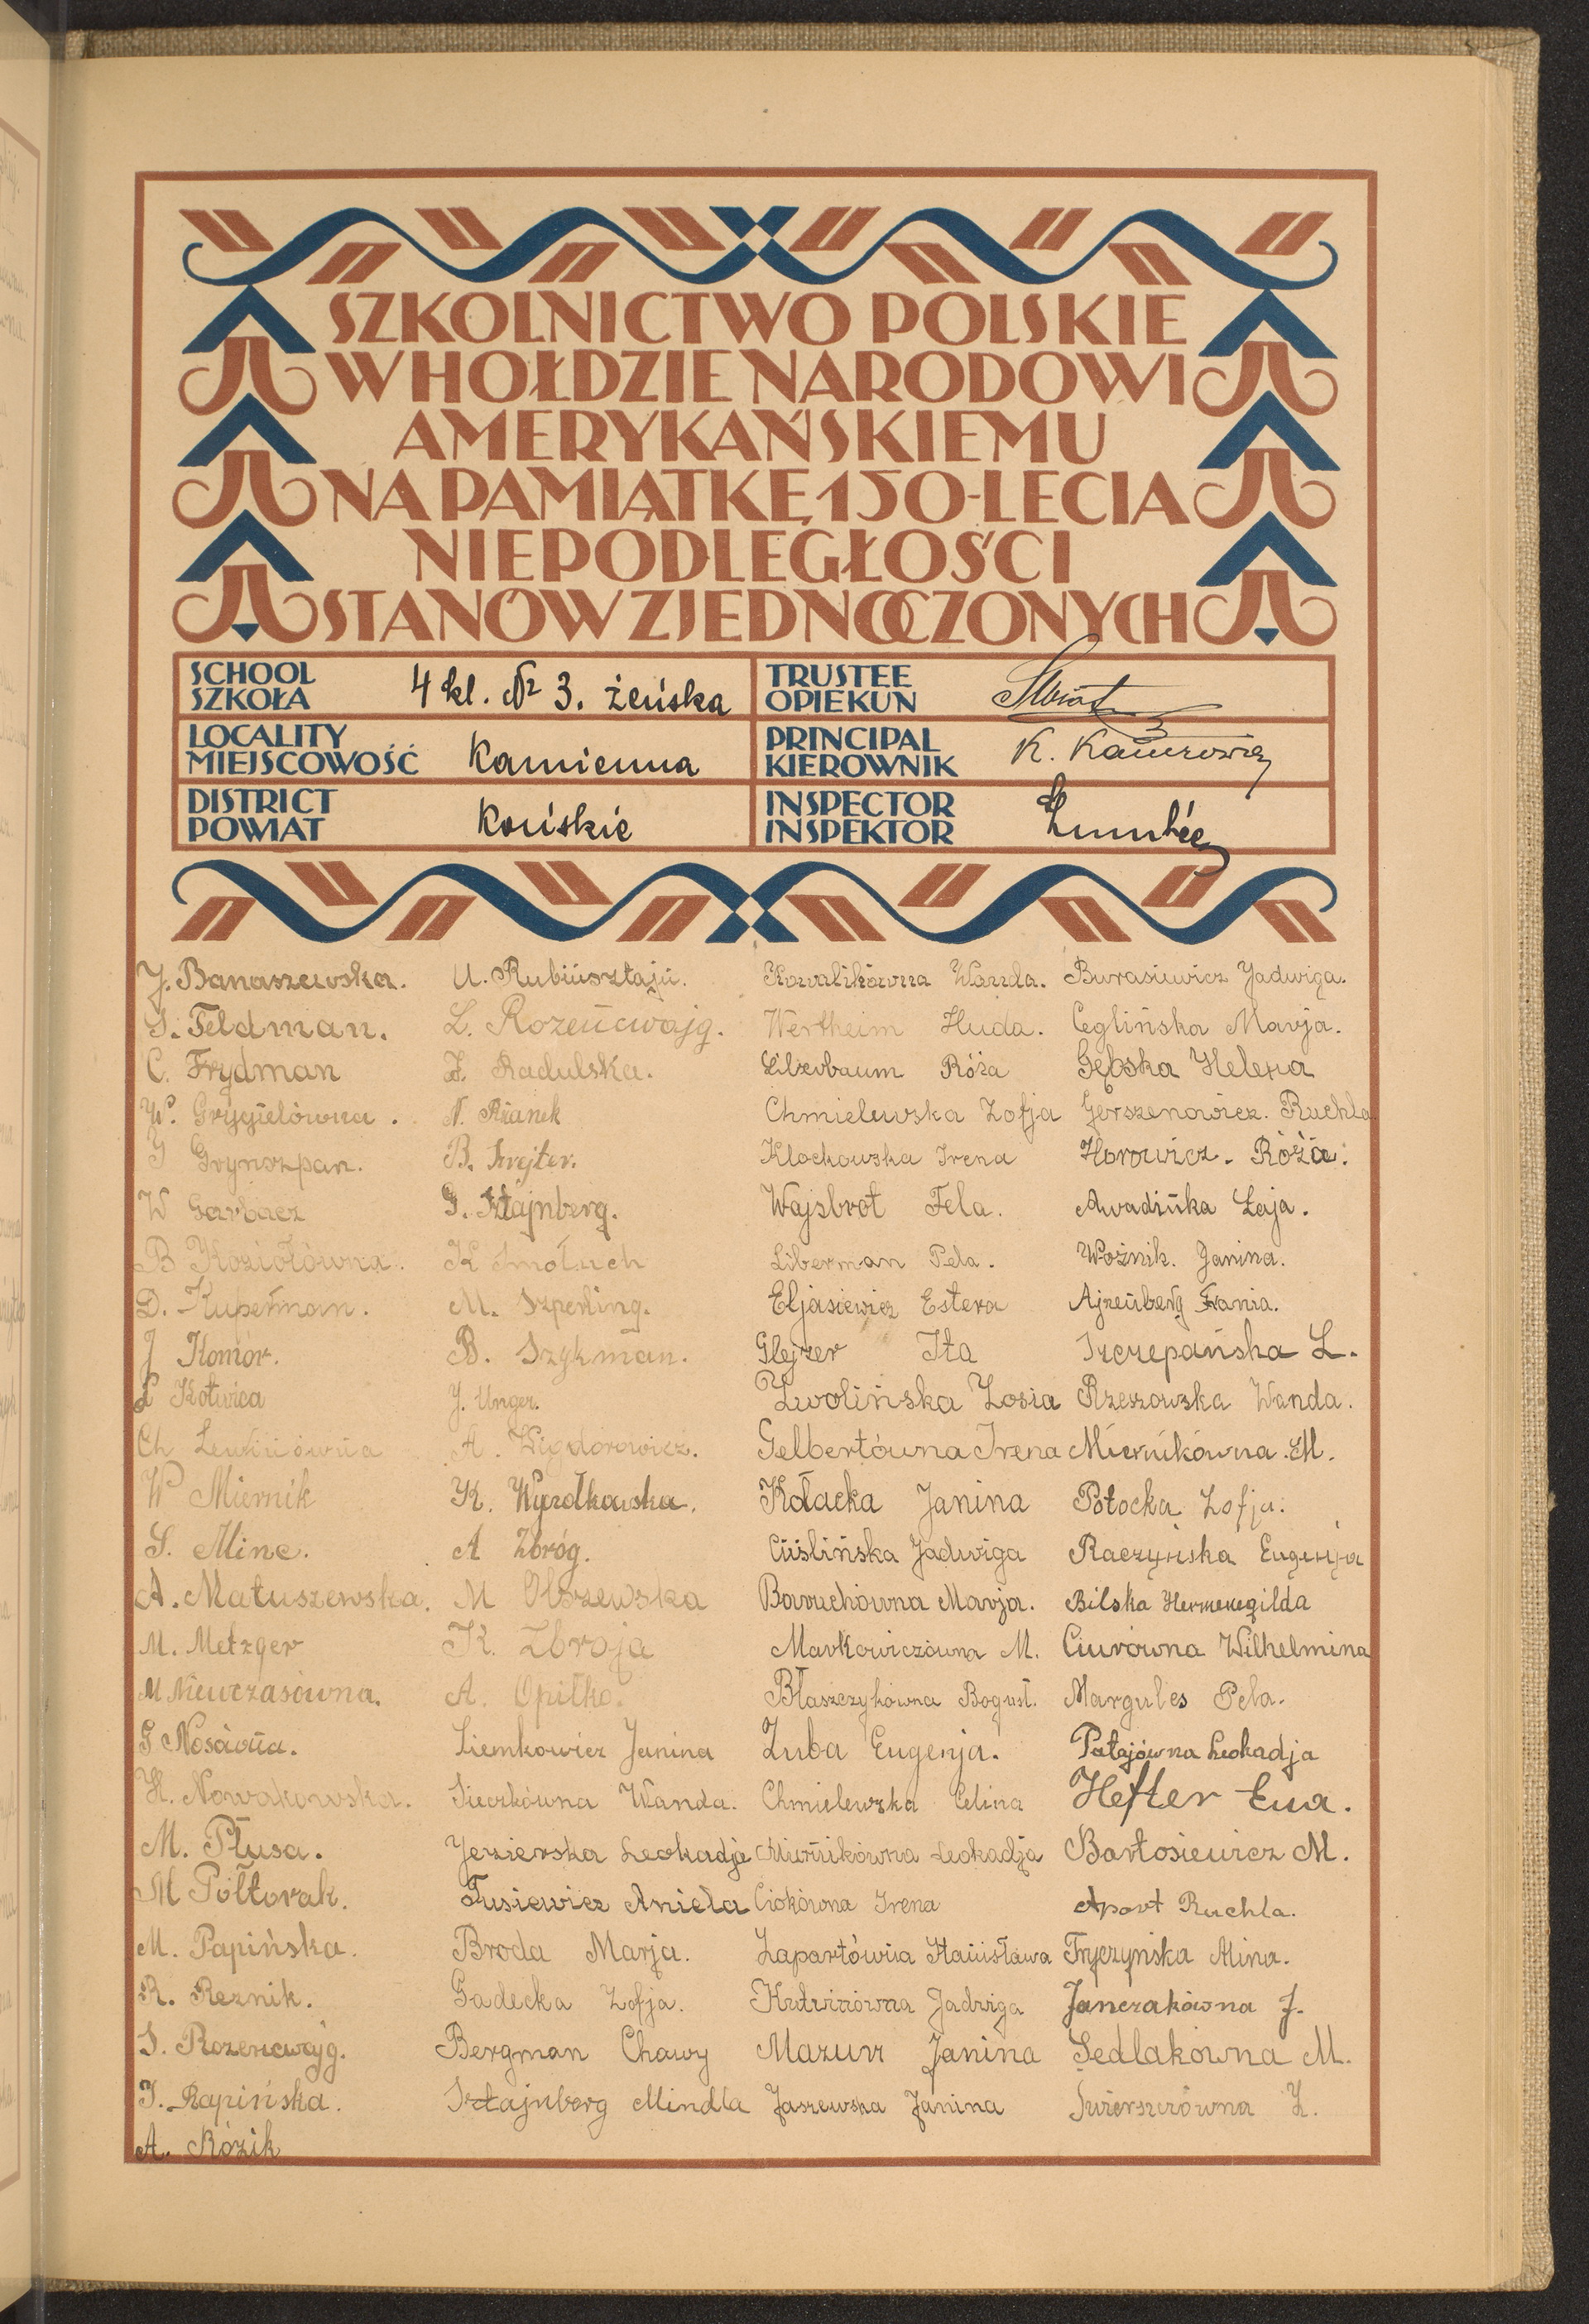 SZKOLNICTWO POLSKIE
W HOŁDZIE NARODOWI
AMERYKAŃSKIEMU
NA PAMIĄTKĘ 150-LECIA
NIEPODLEGŁOŚCI
STANÓW ZJEDNOCZONYCH
SCHOOL
SZKOŁA
4 kl. № 3. żeńska
TRUSTEE
OPIEKUN
LOCALITY
MIEJSCOWOŚĆ
Kamienna
PRINCIPAL
KIEROWNIK
K.
DISTRICT
POWIAT
Końskie
INSPECTOR
INSPEKTOR
J. Banaszewska.
S. Feldman.
C. Frydman
W. Grygielówna.
J Grynszpan.
W Garbacz
B Koziołówna.
D. Kuperman.
J Komór.
Kotwica
Ch
W Miernik
S. Minc.
A. Matuszewska.
M. Metzger
M Niewczasówna.
G Nosówna.
H. Nowakowska.
M. Płusa.
M Półtorak.
M. Papińska.
R. Reznik.
S. Rozencwajg.
J. Rapińska.
A. Rózik
U. Rubinsztajn.
L. Rozencwajg.
Z. Radulska.
N. Rżanek
B. Szrejter.
G. Sztajnberg.
K Smołuch
M. Szperling.
B. Szykman.
J. Unger.
A. Wigdorowicz.
K. Wyrzołkowska.
A Zbróg.
M Olszewska
K. Zbroja
A. Opiłko.
Siemkowicz Janina
Sieczkówna Wanda.
Jezierska Leokadja
Tusiewicz Aniela
Broda Marja.
Gadecka Zofja.
Bergman Chawy
Sztajnberg Mindla
Kowalikówna Wanda.
Wertheim Huda.
Lilzerbaum Róża
Chmielewska Zofja
Klochowska Irena
Wajsbrot Fela.
Liberman Pela.
Eljasiewicz Estera
Glejzer Ita
Zwolińska Zosia
Gelbertówna Irena
Kołacka Janina
Cieślińska Jadwiga
Baruchówna Marja.
Markowiczówna M.
Błaszczykówna Bogusł.
Zuba Eugenja.
Chmielewska Celina
Miernikówna Leokadja
Ciokówna Irena
Zapartówna Stanisława
Kutwinówna Jadwiga
Mazur Janina
Jaszewska Janina
Burasiewicz Jadwiga.
Ceglińska Marja.
Gębska Helena
Gerszenowicz. Ruchla
Horowicz. Róża.
Awadińka Łaja.
Woźnik. Janina.
Ajzenberg Frania.
Szczepańska L.
Rzeszowska Wanda.
Miernikówna. M.
Potocka Zofja.
Raczyńska Eugenja
Bilska Hermenegilda
Ciurówna Wilhelmina
Margules Pela.
Patajówna Leokadja
Hefter Ewa.
Bartosiewicz M.
Apart Ruchla.
Tryczyńska Mina.
Janczakówna J.
Sedlakówna M.
Świerszczówna Z.